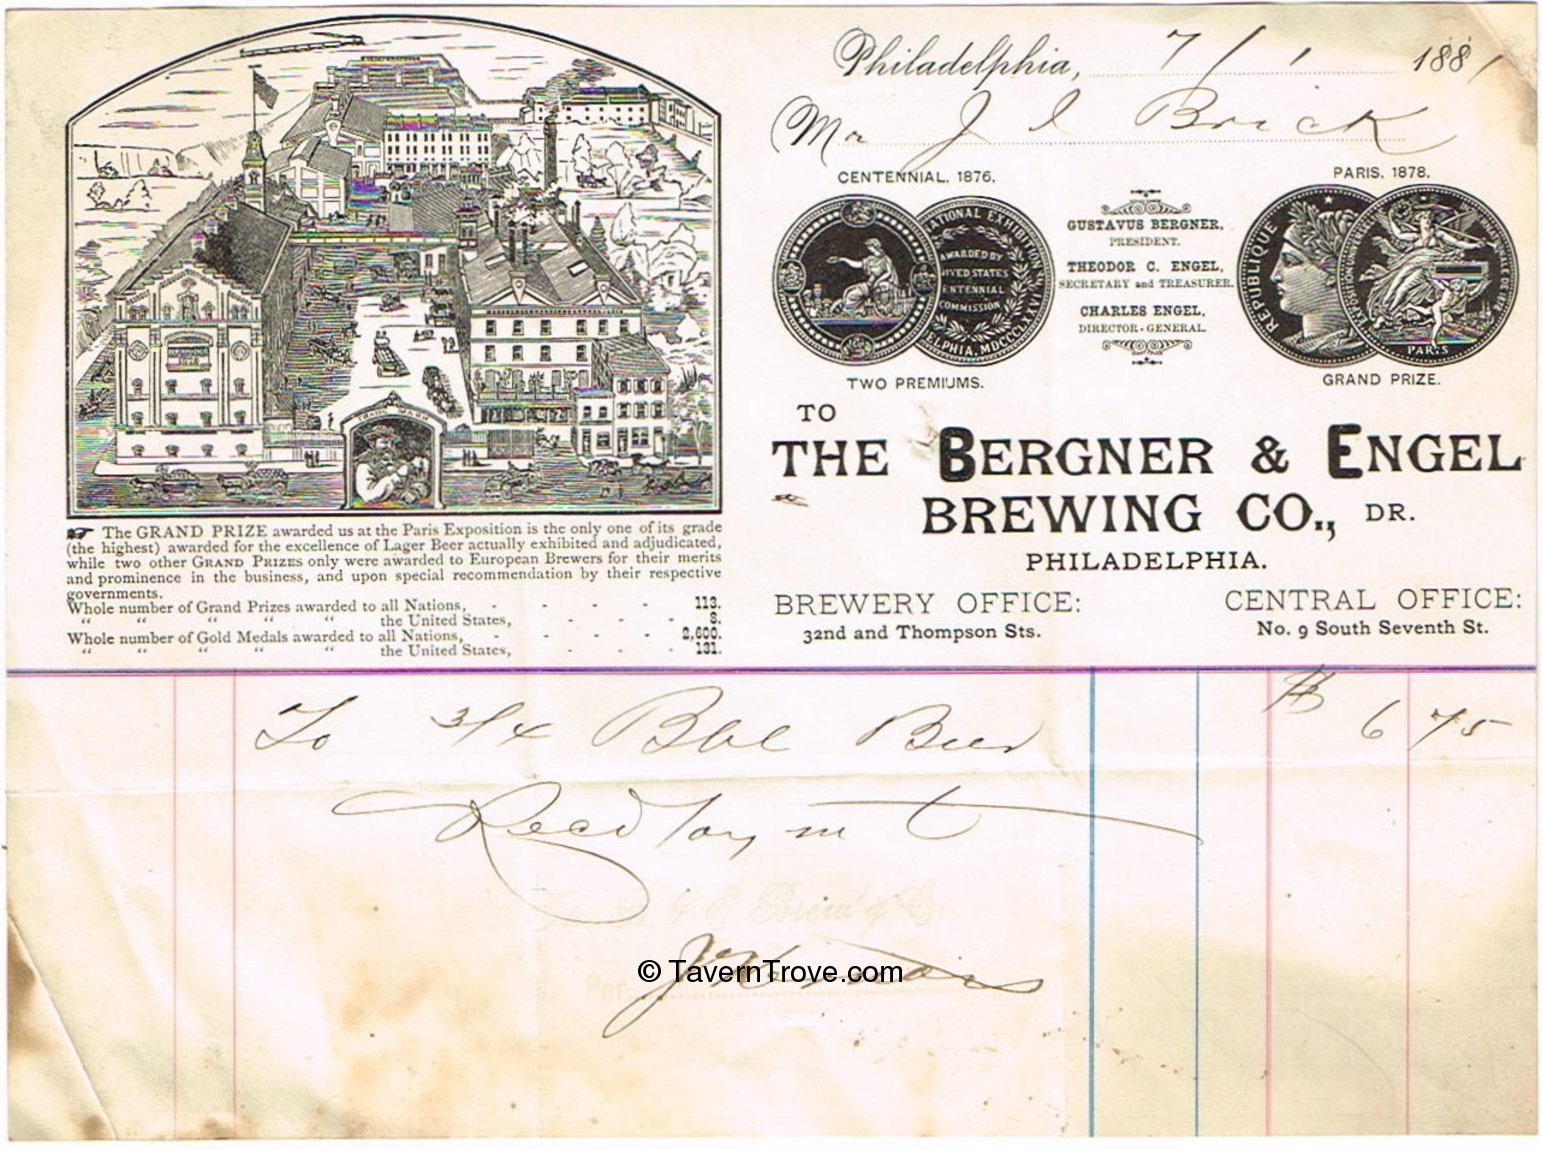 Philadelphia, 7/1 1881
Mr J I Brick
CENTENNIAL. 1876.
PARIS. 1878.
GUSTAVUS BERGNER,
PRESIDENT.
THEODOR C. ENGEL,
SECRETARY and TREASURER.
CHARLES ENGEL,
DIRECTOR-GENERAL.
NATIONAL EXHIBITION
AWARDED BY
UNITED STATES
CENTENNIAL
COMMISSION
REPUBLIQUE
PARIS
TWO PREMIUMS.
GRAND PRIZE.
TO
THE BERGNER & ENGEL
BREWING CO., DR.
PHILADELPHIA.
BREWERY OFFICE:
32nd and Thompson Sts.
CENTRAL OFFICE:
No. 9 South Seventh St.
TRADE MARK
The GRAND PRIZE awarded us at the Paris Exposition is the only one of its grade
(the highest) awarded for the excellence of Lager Beer actually exhibited and adjudicated,
while two other GRAND PRIZES only were awarded to European Brewers for their merits
and prominence in the business, and upon special recommendation by their respective
governments.
Whole number of Grand Prizes awarded to all Nations, - - - - 113.
" " " " " the United States, - - - 8.
Whole number of Gold Medals awarded to all Nations, - - - - 2,600.
" " " " " the United States, - - - 131.
To 3/4 Bbl Beer $ 6 75
Recd Paymt
B & E Brew'g Co
Per
© TavernTrove.com